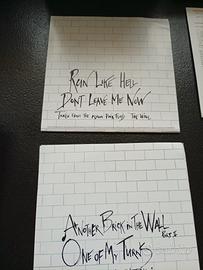 Run Like Hell
Don't Leave Me Now
Taken from the album Pink Floyd The Wall
Another Brick in the Wall
Part II
One of My Turns